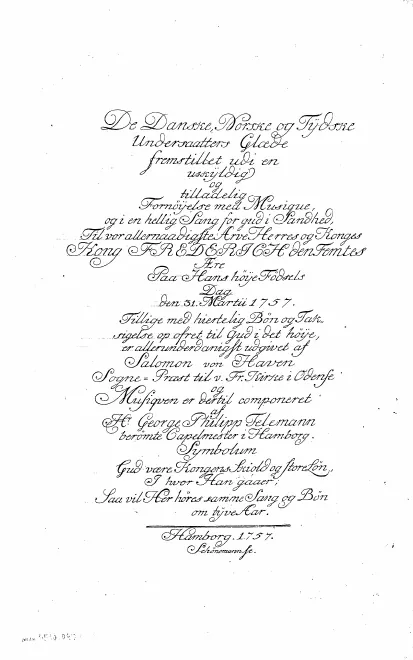 De Danske, Norske og Tÿdske
Undersaatters Glæde
fremstillet udi en
uskÿldig
og
tilladelig
Fornöÿelse med Musique,
og i en hellig Sang for gud i Sandhed,
Til vor allernaadigste Arve Herres og Konges
Kong FREDERICH den Femtes
Ære
Paa Hans höÿe Födsels
Dag
den 31. Martii 1757.
Tillige med hiertelig Bön og Tak,
sigelse op ofret til Gud i det höÿe,
er allerunderdanigst udgivet af
Salomon von Haven
Sogne = Præst til v. Fr. Kirke i Odense
og
Musiqven er dertil componeret
af
Hr. George Philipp Telemann
berömte Capelmester i Hamborg.
Symbolum
Gud være Kongens Skiold og store Lön,
I hvor Han gaaer,
Saa vil Her höres samme Sang og Bön
om tÿve Aar.
Hamborg. 1757.
Schönemann fc.